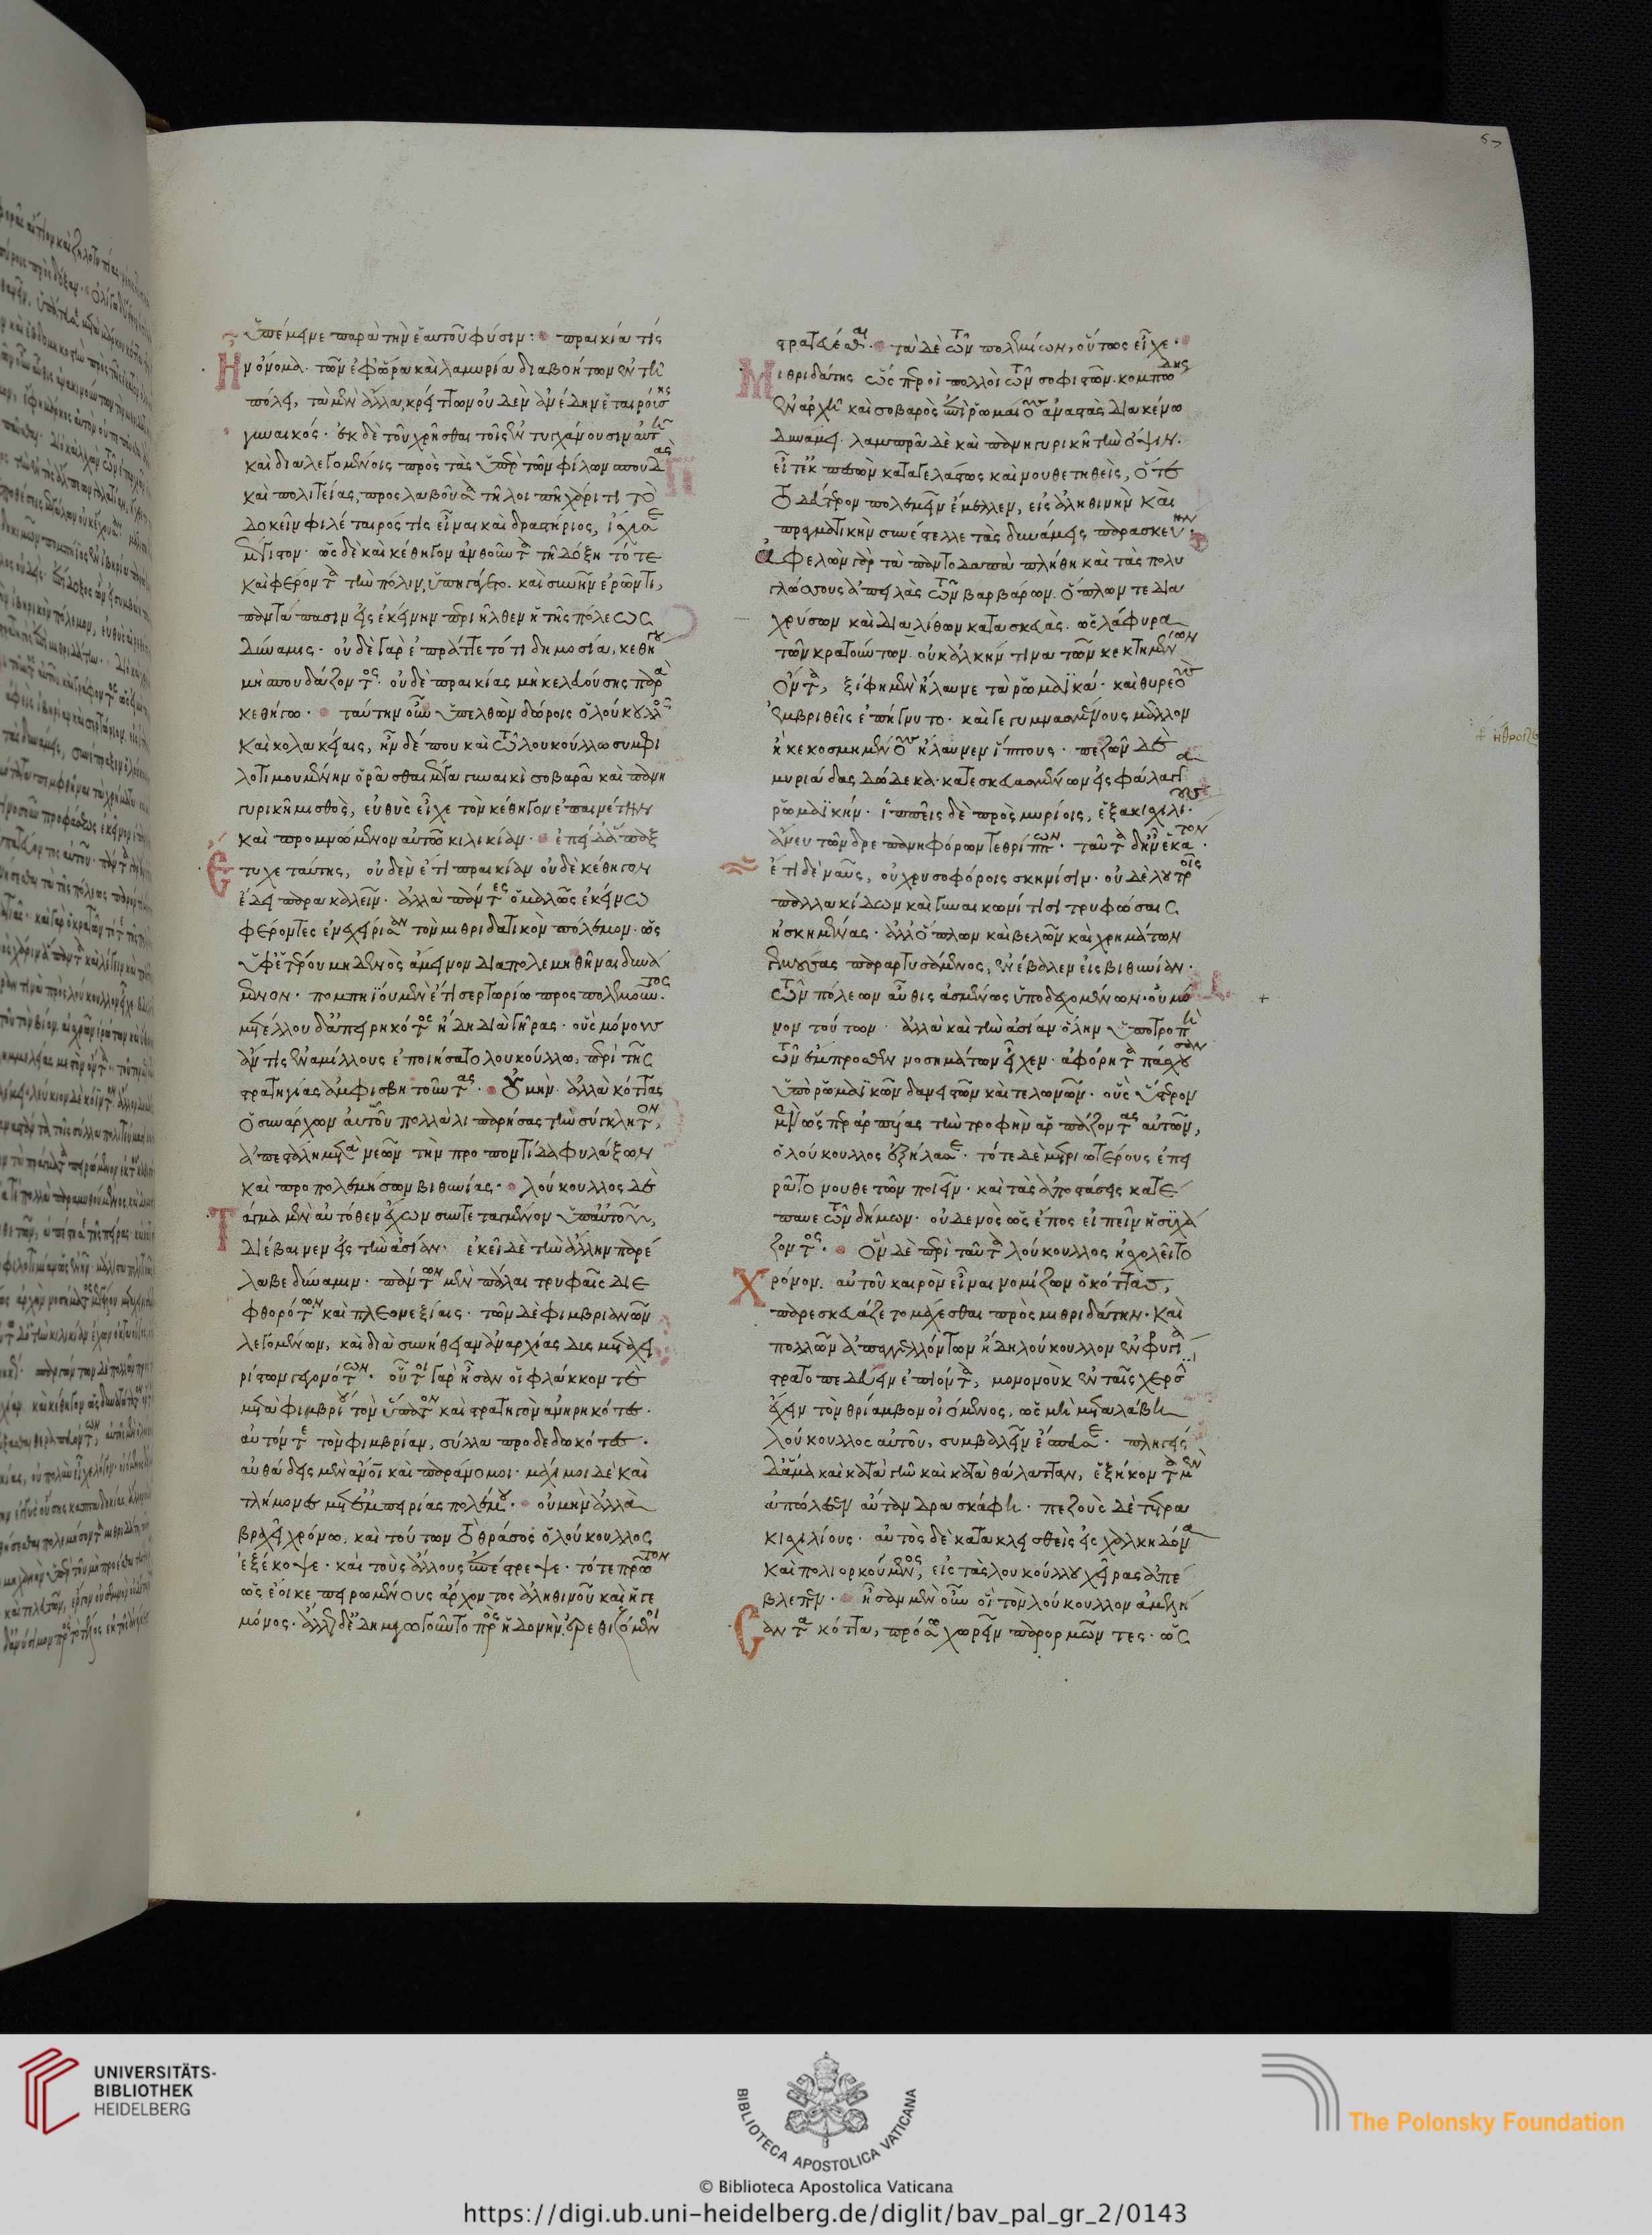 67
ὑπέμεινε παρὰ τὴν ἑαυτοῦ φύσιν: πραικία τίς
Ἦν ὄνομα. τῶν ἐφ' ὥρα καὶ λαμυρία διαβοήτων ἐν τῇ
πόλει, τὰ μὲν ἄλλα, κρείττων οὐδὲν ἀνέδην ἑταιρούσης
γυναικός. ἐκ δὲ τοῦ χρῆσθαι τοῖς ἐντυγχάνουσιν αὐτῇ
καὶ διαλεγομένοις πρὸς τὰς ὑπὲρ τῶν φίλων σπουδὰς
καὶ πολιτείας, προσλαβοῦσα τῇ λοιπῇ χάριτι τὸ
δοκεῖν φιλέταιρός τις εἶναι καὶ δραστήριος, ἴσχυσε
μέγιστον. ὡς δὲ καὶ κέθηγον ἀνθοῦντα τῇ δόξῃ τότε
καὶ φέροντα τὴν πόλιν, ὑπηγάγετο. καὶ συνῆν ἐρῶντι,
παντάπασιν εἰς ἐκείνην περιῆλθεν ἡ τῆς πόλεως
δύναμις. οὐδὲ γὰρ ἐπράττετό τι δημοσία, κεθήγου
μὴ σπουδάζοντος. οὐδὲ πραικίας μὴ κελευούσης παρὰ
κεθήγω. ταύτην οὖν ὑπελθὼν δώροις ὁ λούκουλλος
καὶ κολακείαις, ἦν δέ που καὶ τῶ λουκούλλω συμφι
λοτιμουμένην ὁρᾶσθαι μέγα γυναικὶ σοβαρᾶ καὶ πανη
γυρικῇ μισθὸς, εὐθὺς εἶχε τὸν κέθηγον ἐπαινέτην
καὶ προμνώμενον αὐτῶ κιλικίαν. ἐπεὶ δ' ἅπαξ
Ἔτυχε ταύτης, οὐδὲν ἔτι πραικίαν οὐδὲ κέθηγον
ἔδει παρακαλεῖν. ἀλλὰ πάντες ὁμαλῶς ἐκείνω
φέροντες ἐνεχείρισαν τὸν μιθριδατικὸν πόλεμον. ὡς
ὑφ' ἑτέρου μηδενὸς ἄμεινον διαπολεμηθῆναι δυνά
μενον. πομπηΐου μὲν ἔτι σερτωρίω προσπολεμοῦντος.
μετέλλου δ' ἀπειρηκότος ἤδη διὰ γῆρας. οὓς μόνους
ἄν τις ἐναμίλλους ἐποιήσατο λουκούλλω, περὶ τῆς
στρατηγίας ἀμφισβητοῦντας. Οὐ μὴν ἀλλὰ κόττας
ὁ συνάρχων αὐτοῦ πολλὰ λιπαρήσας τὴν σύγκλητον,
ἀπεστάλη μετὰ νεῶν τὴν προποντίδα φυλάξων
καὶ προπολεμήσων βιθυνίας. λούκουλλος δὲ
Τάγμα μὲν αὐτόθεν ἔχων συντεταγμένον ὑπ' αὐτοῦ,
διέβαινεν εἰς τὴν ἀσίαν. ἐκεῖ δὲ τὴν ἄλλην παρέ
λαβε δύναμιν. πάντων μὲν πάλαι τρυφαῖς διε
φθορότων καὶ πλεονεξίαις. τῶν δὲ φιμβριανῶν
λεγομένων, καὶ διὰ συνήθειαν ἀναρχίας δυσμεταχει
ρίστων γεγονότων. οὗτοι γὰρ ἦσαν οἱ φλάκκον τε
μετὰ φιμβρίου τὸν ὕπατον καὶ στρατηγὸν ἀνηρηκότες.
αὐτόν τε τὸν φιμβρίαν, σύλλα προδεδωκότες.
αὐθάδεις μὲν ἄνθρωποι καὶ παράνομοι. μάχιμοι δὲ καὶ
τλήμονες μετ' ἐμπειρίας πολέμου. οὐ μὴν ἀλλὰ
βραχεῖ χρόνω, καὶ τούτων τὸ θράσος ὁ λούκουλλος
ἐξέκοψε. καὶ τοὺς ἄλλους ἐπέστρεψε. τότε πρῶτον
ὡς ἔοικε πειρωμένους ἄρχοντος ἀληθινοῦ καὶ ἡγε
μόνος. ἄλλως δ' ἐδημαγωγοῦντο πρὸς ἡδονὴν ἐθιζόμενοι
στρατεύεσθαι. τὰ δὲ τῶν πολεμίων, οὕτως εἶχε.
Μιθριδάτης ὥσπερ οἱ πολλοὶ τῶν σοφιστῶν. κομπώδης
ἐν ἀρχῇ καὶ σοβαρὸς ἐπὶ ῥωμαίους ἀναστὰς διακένω
δυνάμει. λαμπρᾶ δὲ καὶ πανηγυρικῇ τὴν ὄψιν.
εἶτ' ἐκπεσὼν καταγελάστως καὶ νουθετηθεὶς, ὅτε
τὸ δεύτερον πολεμεῖν ἔμελλεν, εἰς ἀληθινὴν καὶ
πραγματικὴν συνέστελλε τὰς δυνάμεις παρασκευήν.
ἀφελὼν γὰρ τὰ παντοδαπὰ πλήθη καὶ τὰς πολυ
γλώσσους ἀπειλὰς τῶν βαρβάρων. ὅπλων τε δια
χρύσων καὶ διαλίθων κατασκευὰς. ὡς λάφυρα
τῶν κρατούντων. οὐκ ἀλκήν τινα τῶν κεκτημένων
ὄντα, ξίφη μὲν ἤλαυνε τὰ ῥωμαϊκά. καὶ θυρεοὺς
ἐμβριθεῖς ἐπήγνυτο. καὶ γεγυμνασμένους μᾶλλον
ἢ κεκοσμημένους ἤλαυνεν ἵππους. πεζῶν δὲ
μυριάδας δώδεκα. κατεσκευασμένων εἰς φάλαγγα
ῥωμαϊκήν. ἱππεῖς δὲ πρὸς μυρίοις, ἑξακισχιλίους.
ἄνευ τῶν δρεπανηφόρων τεθρίππων. ταῦτα δ' ἦν ἑκατόν.
ἔτι δὲ ναῦς, οὐ χρυσορόφοις σκηνίσιν. οὐδὲ λουτροῖς
παλλακίδων καὶ γυναικωνίτισι τρυφώσαις
ἠσκημένας. ἀλλ' ὅπλων καὶ βελῶν καὶ χρημάτων
γεμούσας παραρτυσάμενος, ἐνέβαλεν εἰς βιθυνίαν.
τῶν πόλεων αὖθις ἀσμένως ὑποδεχομένων. οὐ μό
νον τούτων. ἀλλὰ καὶ τὴν ἀσίαν ὅλην ὑποτροπὴ
τῶν ἔμπροσθεν νοσημάτων εἶχεν. ἀφόρητα πάσχουσαν
ὑπὸ ῥωμαϊκῶν δανειστῶν καὶ τελωνῶν. οὓς ὕστερον
μὲν ὥσπερ ἁρπυίας τὴν τροφὴν ἁρπάζοντας αὐτῶν,
ὁ λούκουλλος ἐξήλασε. τότε δὲ μετριωτέρους ἐπει
ρᾶτο νουθετῶν ποιεῖν. καὶ τὰς ἀποστάσεις κατέ
παυε τῶν δήμων. οὐδενὸς ὡς ἔπος εἰπεῖν ἡσυχά
ζοντος. Ὃν δὲ περὶ ταῦτα λούκουλλος ἠσχολεῖτο
Χρόνον. αὑτοῦ καιρὸν εἶναι νομίζων ὁ κόττας,
παρεσκευάζετο μάχεσθαι πρὸς μιθριδάτην. καὶ
πολλῶν ἀπαγγελλόντων ἤδη λούκουλλον ἐν φρυγία
στρατοπεδεύειν ἐπιόντα, μονονοὺκ ἐν ταῖς χερσὶν
ἔχειν τὸν θρίαμβον οἰόμενος, ὡς μὴ μεταλάβῃ
λούκουλλος αὐτοῦ, συμβαλεῖν ἔσπευσε. πληγεὶς
δ' ἅμα καὶ κατὰ γῆν καὶ κατὰ θάλατταν, ἑξήκοντα μὲν
ἀπώλεσεν αὔτανδρα σκάφη. πεζοὺς δὲ τετρα
κισχιλίους. αὐτὸς δὲ κατακλεισθεὶς εἰς χαλκηδόνα
καὶ πολιορκούμενος, εἰς τὰς λουκούλλου χεῖρας ἀπέ
βλεπεν. ἦσαν μὲν οὖν οἳ τὸν λούκουλλον ἀμελή
Σαντα κόττα, πρόσω χωρεῖν παρορμῶντες. ὡς
UNIVERSITÄTS-
BIBLIOTHEK
HEIDELBERG
BIBLIOTECA APOSTOLICA VATICANA
The Polonsky Foundation
© Biblioteca Apostolica Vaticana
https://digi.ub.uni-heidelberg.de/diglit/bav_pal_gr_2/0143